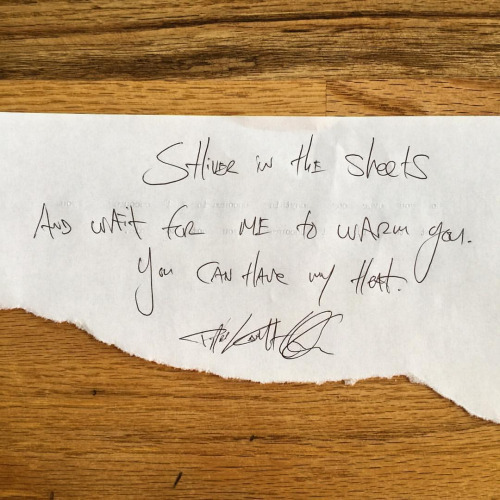 SHIVER in tHE sheets
AND wAit foR ME to wARM you.
you CAN HAVE my HEAt.